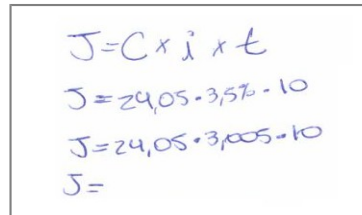 J=C×i×t
J=24,05·3,5%·10
J=24,05·3,005·10
J=